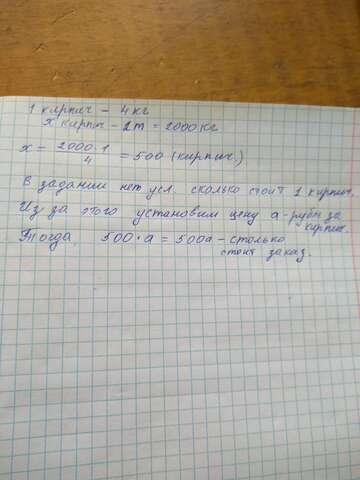 1 кирпич – 4 кг
x кирпич – 2т = 2000 кг
x = 2000·1 / 4 = 500 (кирпич.)
В задании нет усл. сколько стоит 1 кирпич.
Из за этого установим цену а-рубл за кирпич.
Тогда 500·а = 500а – столько
стоит заказ.